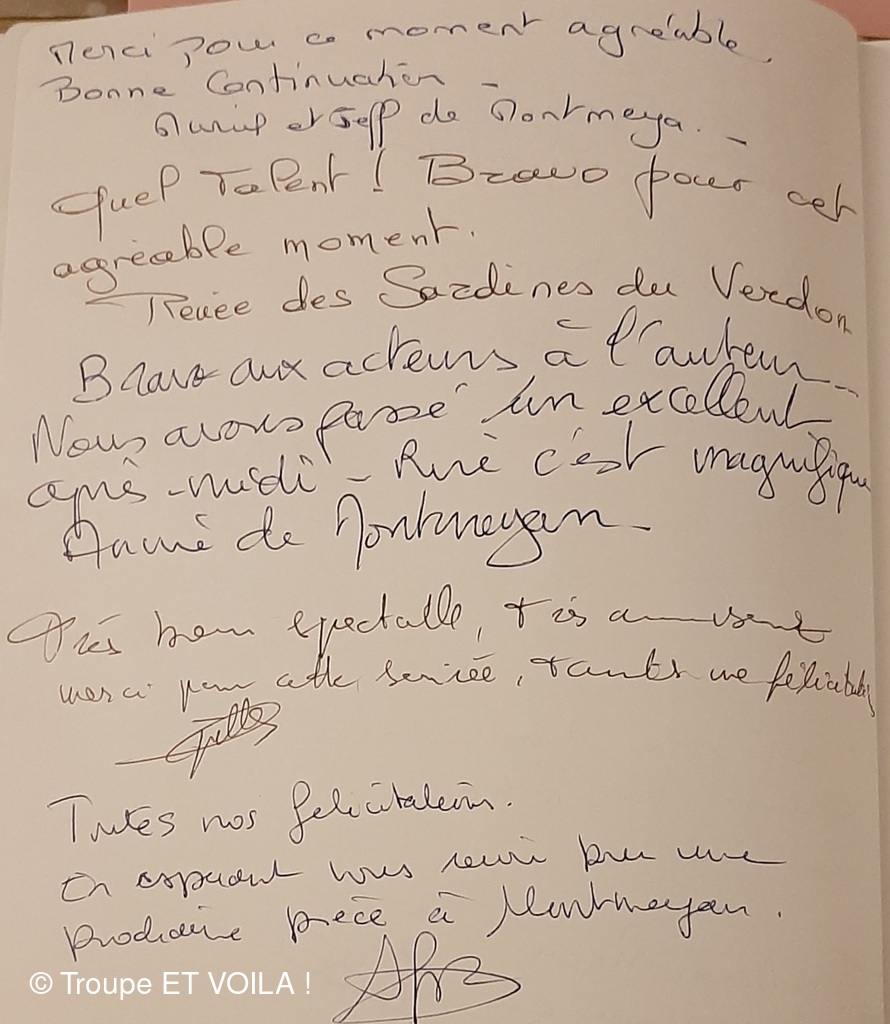 Merci pour ce moment agréable,
Bonne Continuation -
et Jeff de Montmeya. -
Quel Talent ! Bravo pour cet
agréable moment.
des Sardines du Verdon
Bravo aux acteurs à l'auteur -
Nous avons passé un excellent
après-midi - René c'est magnifique
de Montmeyan -
Très bon spectalle, très amusent
merci pour cette soirée, toutes me félicitations
Toutes nos felicitations.
En esperant vous revoir pour une
prochaine pièce à Montmeyan.
© Troupe ET VOILA !